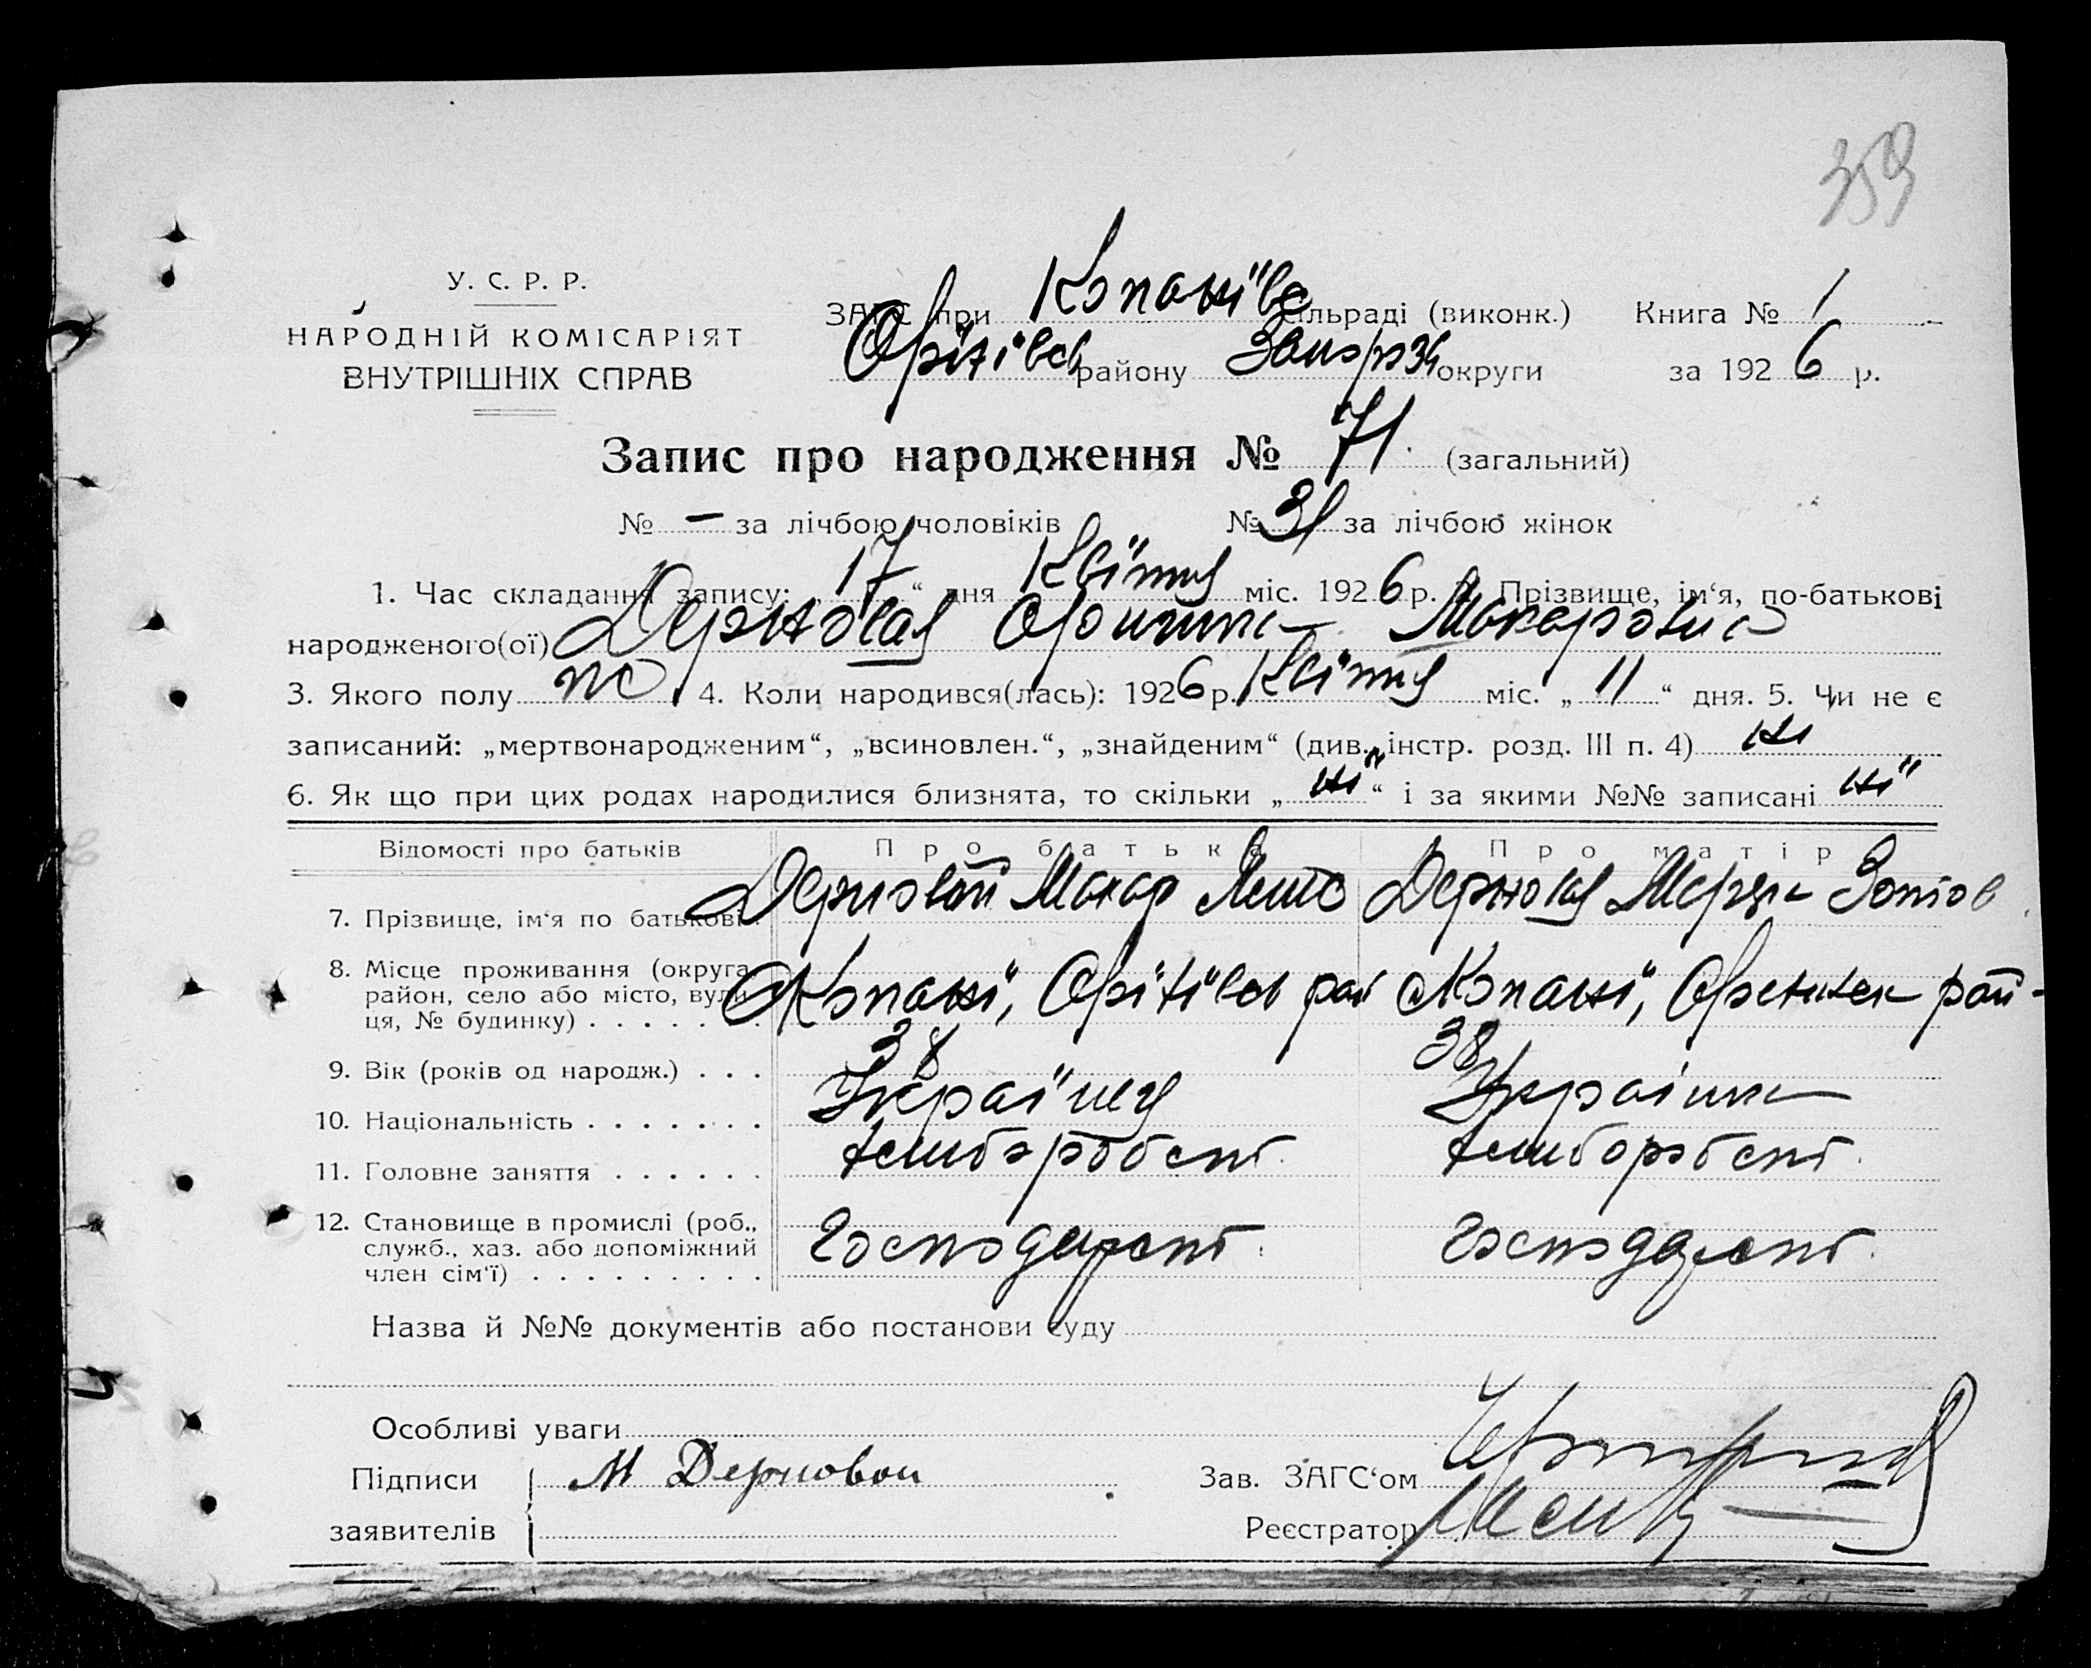 359
У. С. Р. Р.
НАРОДНІЙ КОМІСАРІЯТ
ВНУТРІШНІХ СПРАВ
ЗАГС при Копанівс сільраді (виконк.) Книга № 1
Оріхівськ району Запорізьк округи за 1926 р.
Запис про народження № 71. (загальний)
№ — за лічбою чоловіків № 31 за лічбою жінок
1. Час складання запису: „17“ дня Квітня міс. 1926 р. 2. Прізвище, ім‘я, по-батькові
народженого(ої) Дерновая Макаровна
3. Якого полу жс 4. Коли народився(лась): 1926 р. Квітня міс. „11“ дня. 5. Чи не є
записаний: „мертвонародженим“, „всиновлен.“, „знайденим“ (див. інстр. розд. III п. 4) ні
6. Як що при цих родах народилися близнята, то скільки „ні“ і за якими №№ записані ні
Відомості про батьків Про батька Про матір
7. Прізвище, ім‘я по батькові. Дерновой Макар Дерновая Зотов
8. Місце проживання (округа, район, село або місто, вулиця, № будинку) . . . . . . Копані, Оріхівськ рай Копані, рай-
9. Вік (років од народж.) . . . 38 38
10. Національність . . . . . . . Українец Українка
11. Головне заняття . . . . . . хлиборобст. хлиборобст.
12. Становище в промислі (роб., служб., хаз. або допоміжний член сім‘ї) . . . . . . . . . Господарст. Господарст.
Назва й №№ документів або постанови суду
Особливі уваги
Підписи М Дерновои Зав. ЗАГС‘ом
заявителів Реєстратор